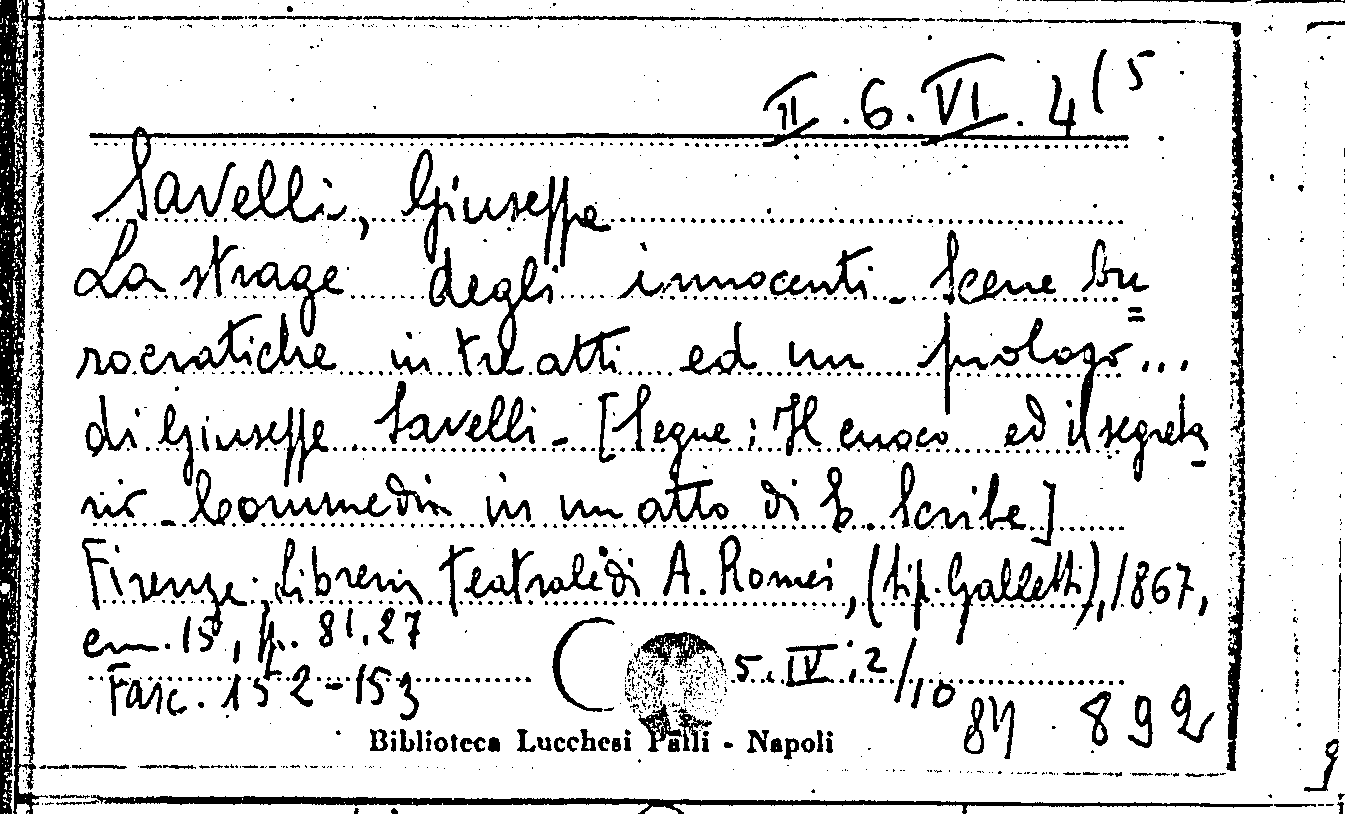 II. 6. VI. 4(5
Savelli, Giuseppe
La strage degli innocenti - Scene bu=
rocratiche in tre atti ed un prologo...
di Giuseppe Savelli - [Segue: Il cuoco ed il segreta
rio - Commedia in un atto di E. Scribe]
Firenze, Libreria Teatrale di A. Romei, (tip. Galletti), 1867,
cm. 15, p. 81.27
5. IV. i2/10
Fasc. 152-153
892
Biblioteca Lucchesi Palli - Napoli